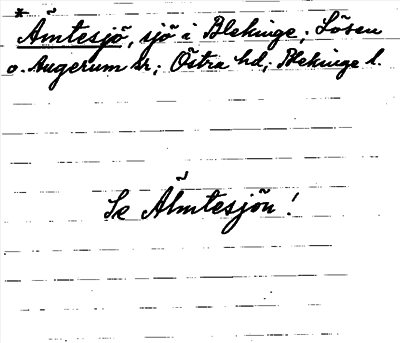 *Åmtesjö, sjö i Blekinge; Lösen
o. Augerum sn; Östra hd; Blekinge l.
Se Älmtesjön!